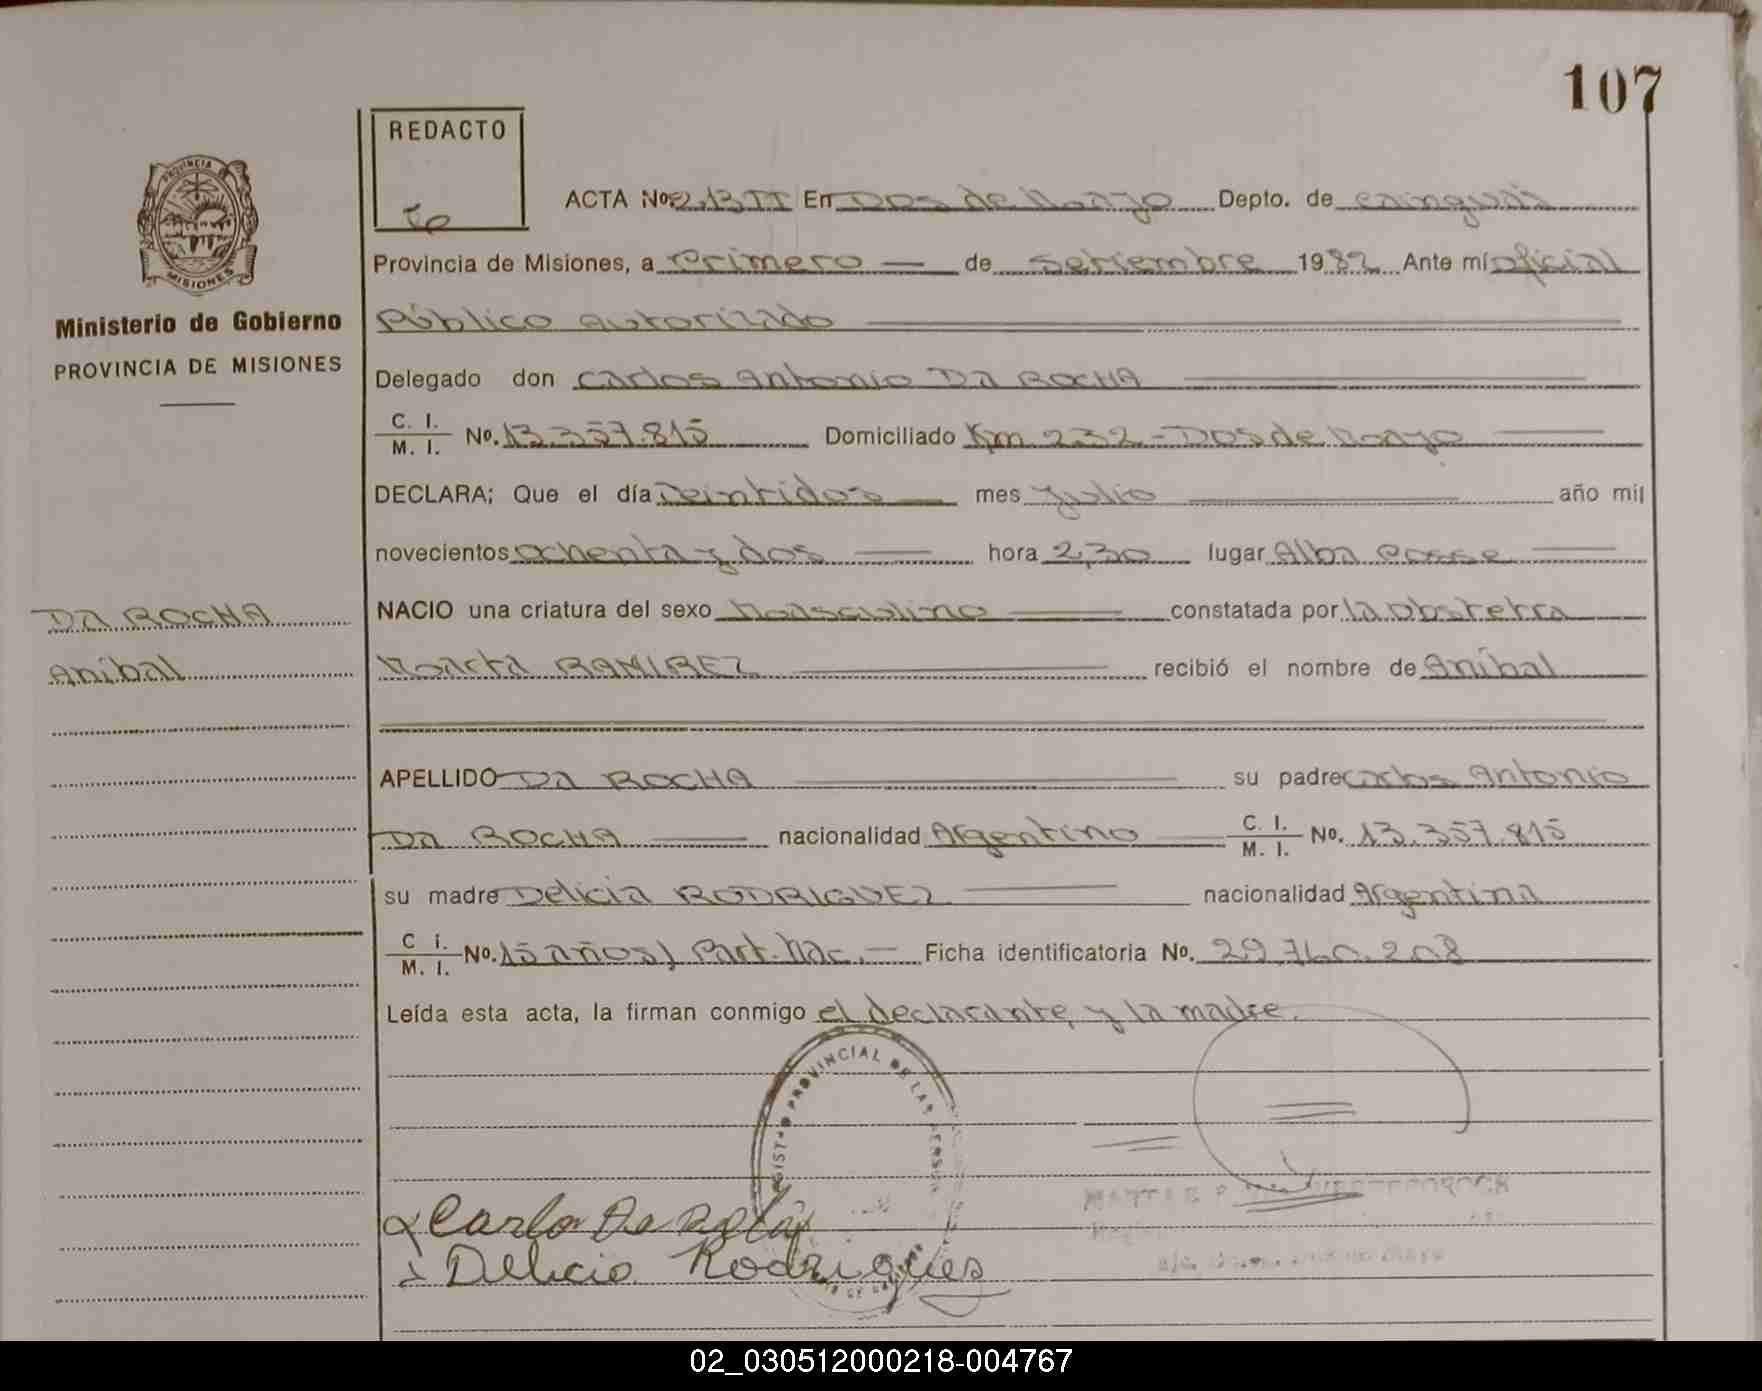 107
REDACTO
PROVINCIA
MISIONES
Ministerio de Gobierno
PROVINCIA DE MISIONES
ACTA No. 213 II En Dos de Mayo Depto. de Cainguás
Provincia de Misiones, a Primero de Setiembre 1982 Ante mí Oficial
Público Autorizado
Delegado don Carlos Antonio DA ROCHA
C. I. M. I. No. 13.357.815 Domiciliado Km 232 - Dos de Mayo
DECLARA; Que el día Veintidos mes Julio año mil
novecientos ochenta y dos hora 2,30 lugar Alba Posse
DA ROCHA
NACIO una criatura del sexo Masculino constatada por la obstetra
Aníbal
Marta RAMIREZ recibió el nombre de Aníbal
APELLIDO DA ROCHA su padre Carlos Antonio
DA ROCHA nacionalidad Argentino C. I. M. I. No. 13.357.815
su madre Delicia RODRIGUEZ nacionalidad Argentina
C. I. M. I. No. 15 años, Part. Nac. Ficha identificatoria No. 29.760.208
Leída esta acta, la firman conmigo el declarante y la madre.
PROVINCIAL DE LAS PERSON
Carlo Da Rocha
Delicia Rodrigues
02_030512000218-004767